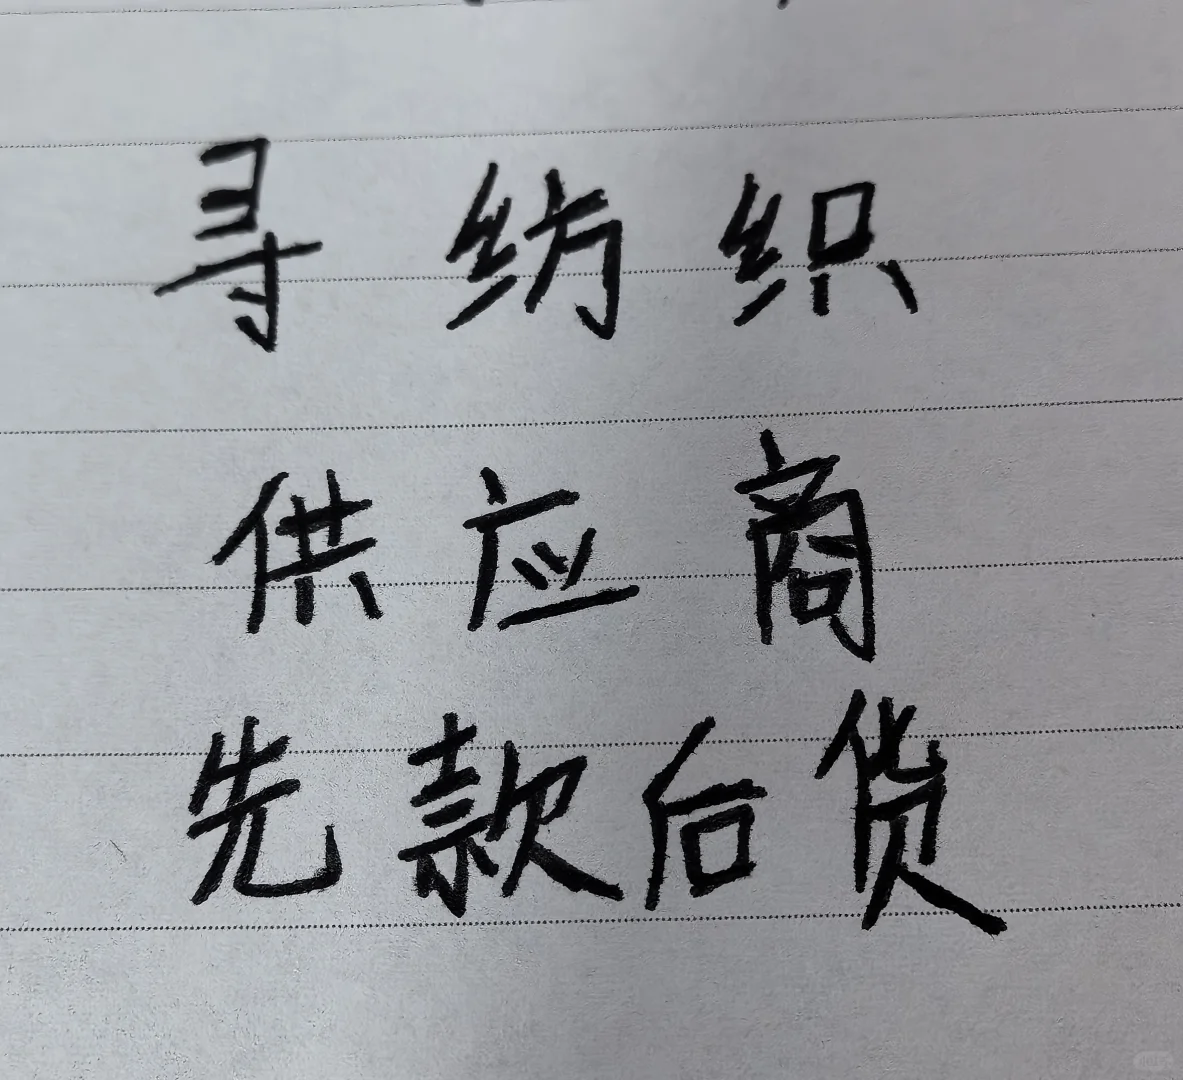 寻纺织
供应商
先款后货